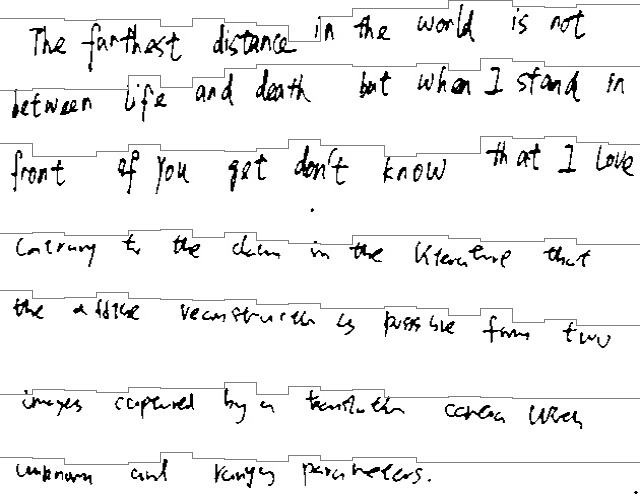 The farthest distance in the world is not
between life and death but when I stand in
front of you yet don't know that I love
Contrary to the claim in the literature that
the affine reconstruction is possible from two
images captured by a translation camera when
unknown and varying parameters.